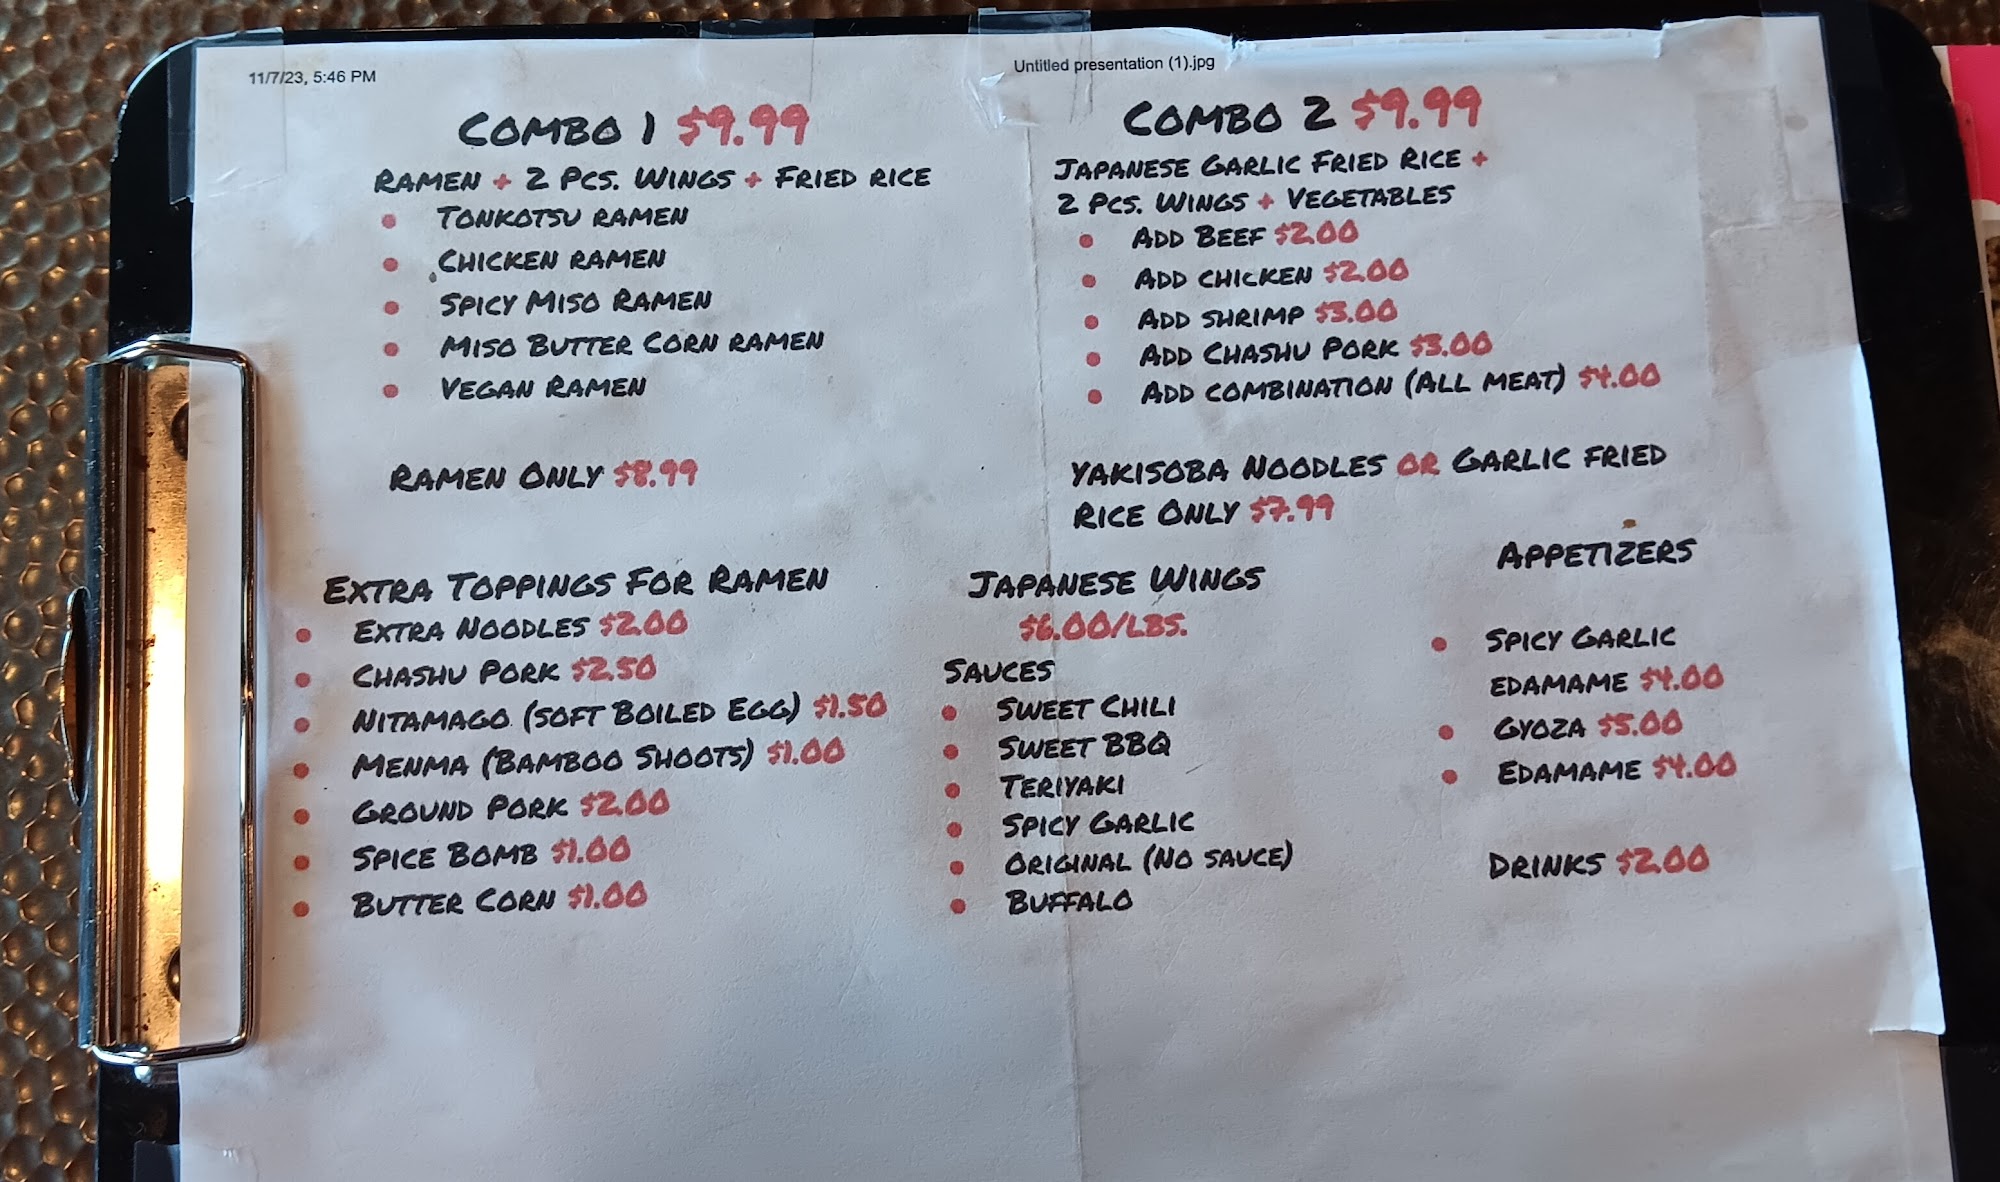 11/7/23, 5:46 PM
Untitled presentation (1).jpg
COMBO 1 $9.99
RAMEN + 2 PCS. WINGS + FRIED RICE
TONKOTSU RAMEN
CHICKEN RAMEN
SPICY MISO RAMEN
MISO BUTTER CORN RAMEN
VEGAN RAMEN
RAMEN ONLY $8.99
COMBO 2 $9.99
JAPANESE GARLIC FRIED RICE +
2 PCS. WINGS + VEGETABLES
ADD BEEF $2.00
ADD CHICKEN $2.00
ADD SHRIMP $3.00
ADD CHASHU PORK $3.00
ADD COMBINATION (ALL MEAT) $4.00
YAKISOBA NOODLES OR GARLIC FRIED
RICE ONLY $7.99
EXTRA TOPPINGS FOR RAMEN
EXTRA NOODLES $2.00
CHASHU PORK $2.50
NITAMAGO (SOFT BOILED EGG) $1.50
MENMA (BAMBOO SHOOTS) $1.00
GROUND PORK $2.00
SPICE BOMB $1.00
BUTTER CORN $1.00
JAPANESE WINGS
$6.00/LBS.
SAUCES
SWEET CHILI
SWEET BBQ
TERIYAKI
SPICY GARLIC
ORIGINAL (NO SAUCE)
BUFFALO
APPETIZERS
SPICY GARLIC
EDAMAME $4.00
GYOZA $5.00
EDAMAME $4.00
DRINKS $2.00